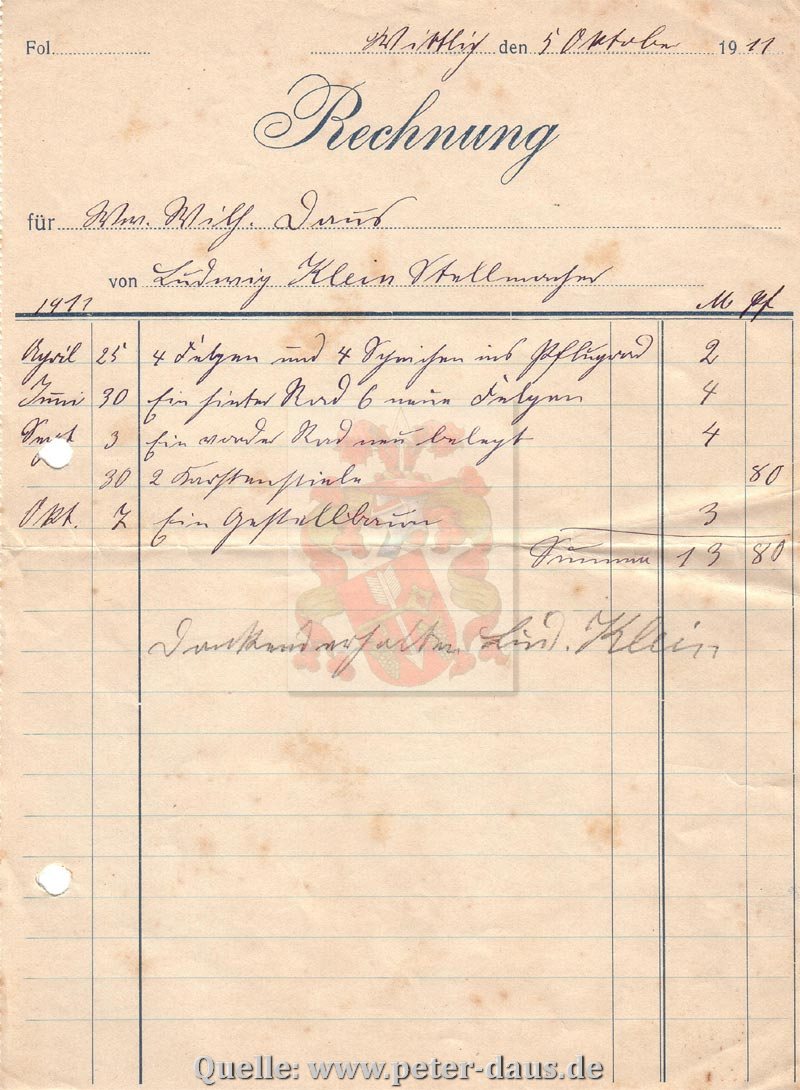 Fol. Wittlich den 5 Oktober 1911
Rechnung
für Ww. Wilh. Daus
von Ludwig Klein Stellmacher
1911 M Pf
April 25 4 Felgen und 4 Speichen ins Pflugrad 2
Juni 30 Ein hinter Rad 6 neue Felgen 4
Sept 3 Ein vorder Rad neu belegt 4
30 2 Karstenstiele 80
Okt. 7 Ein Gestellbaum 3
Summa 13 80
Dankend erhalten Lud. Klein
Quelle: www.peter-daus.de